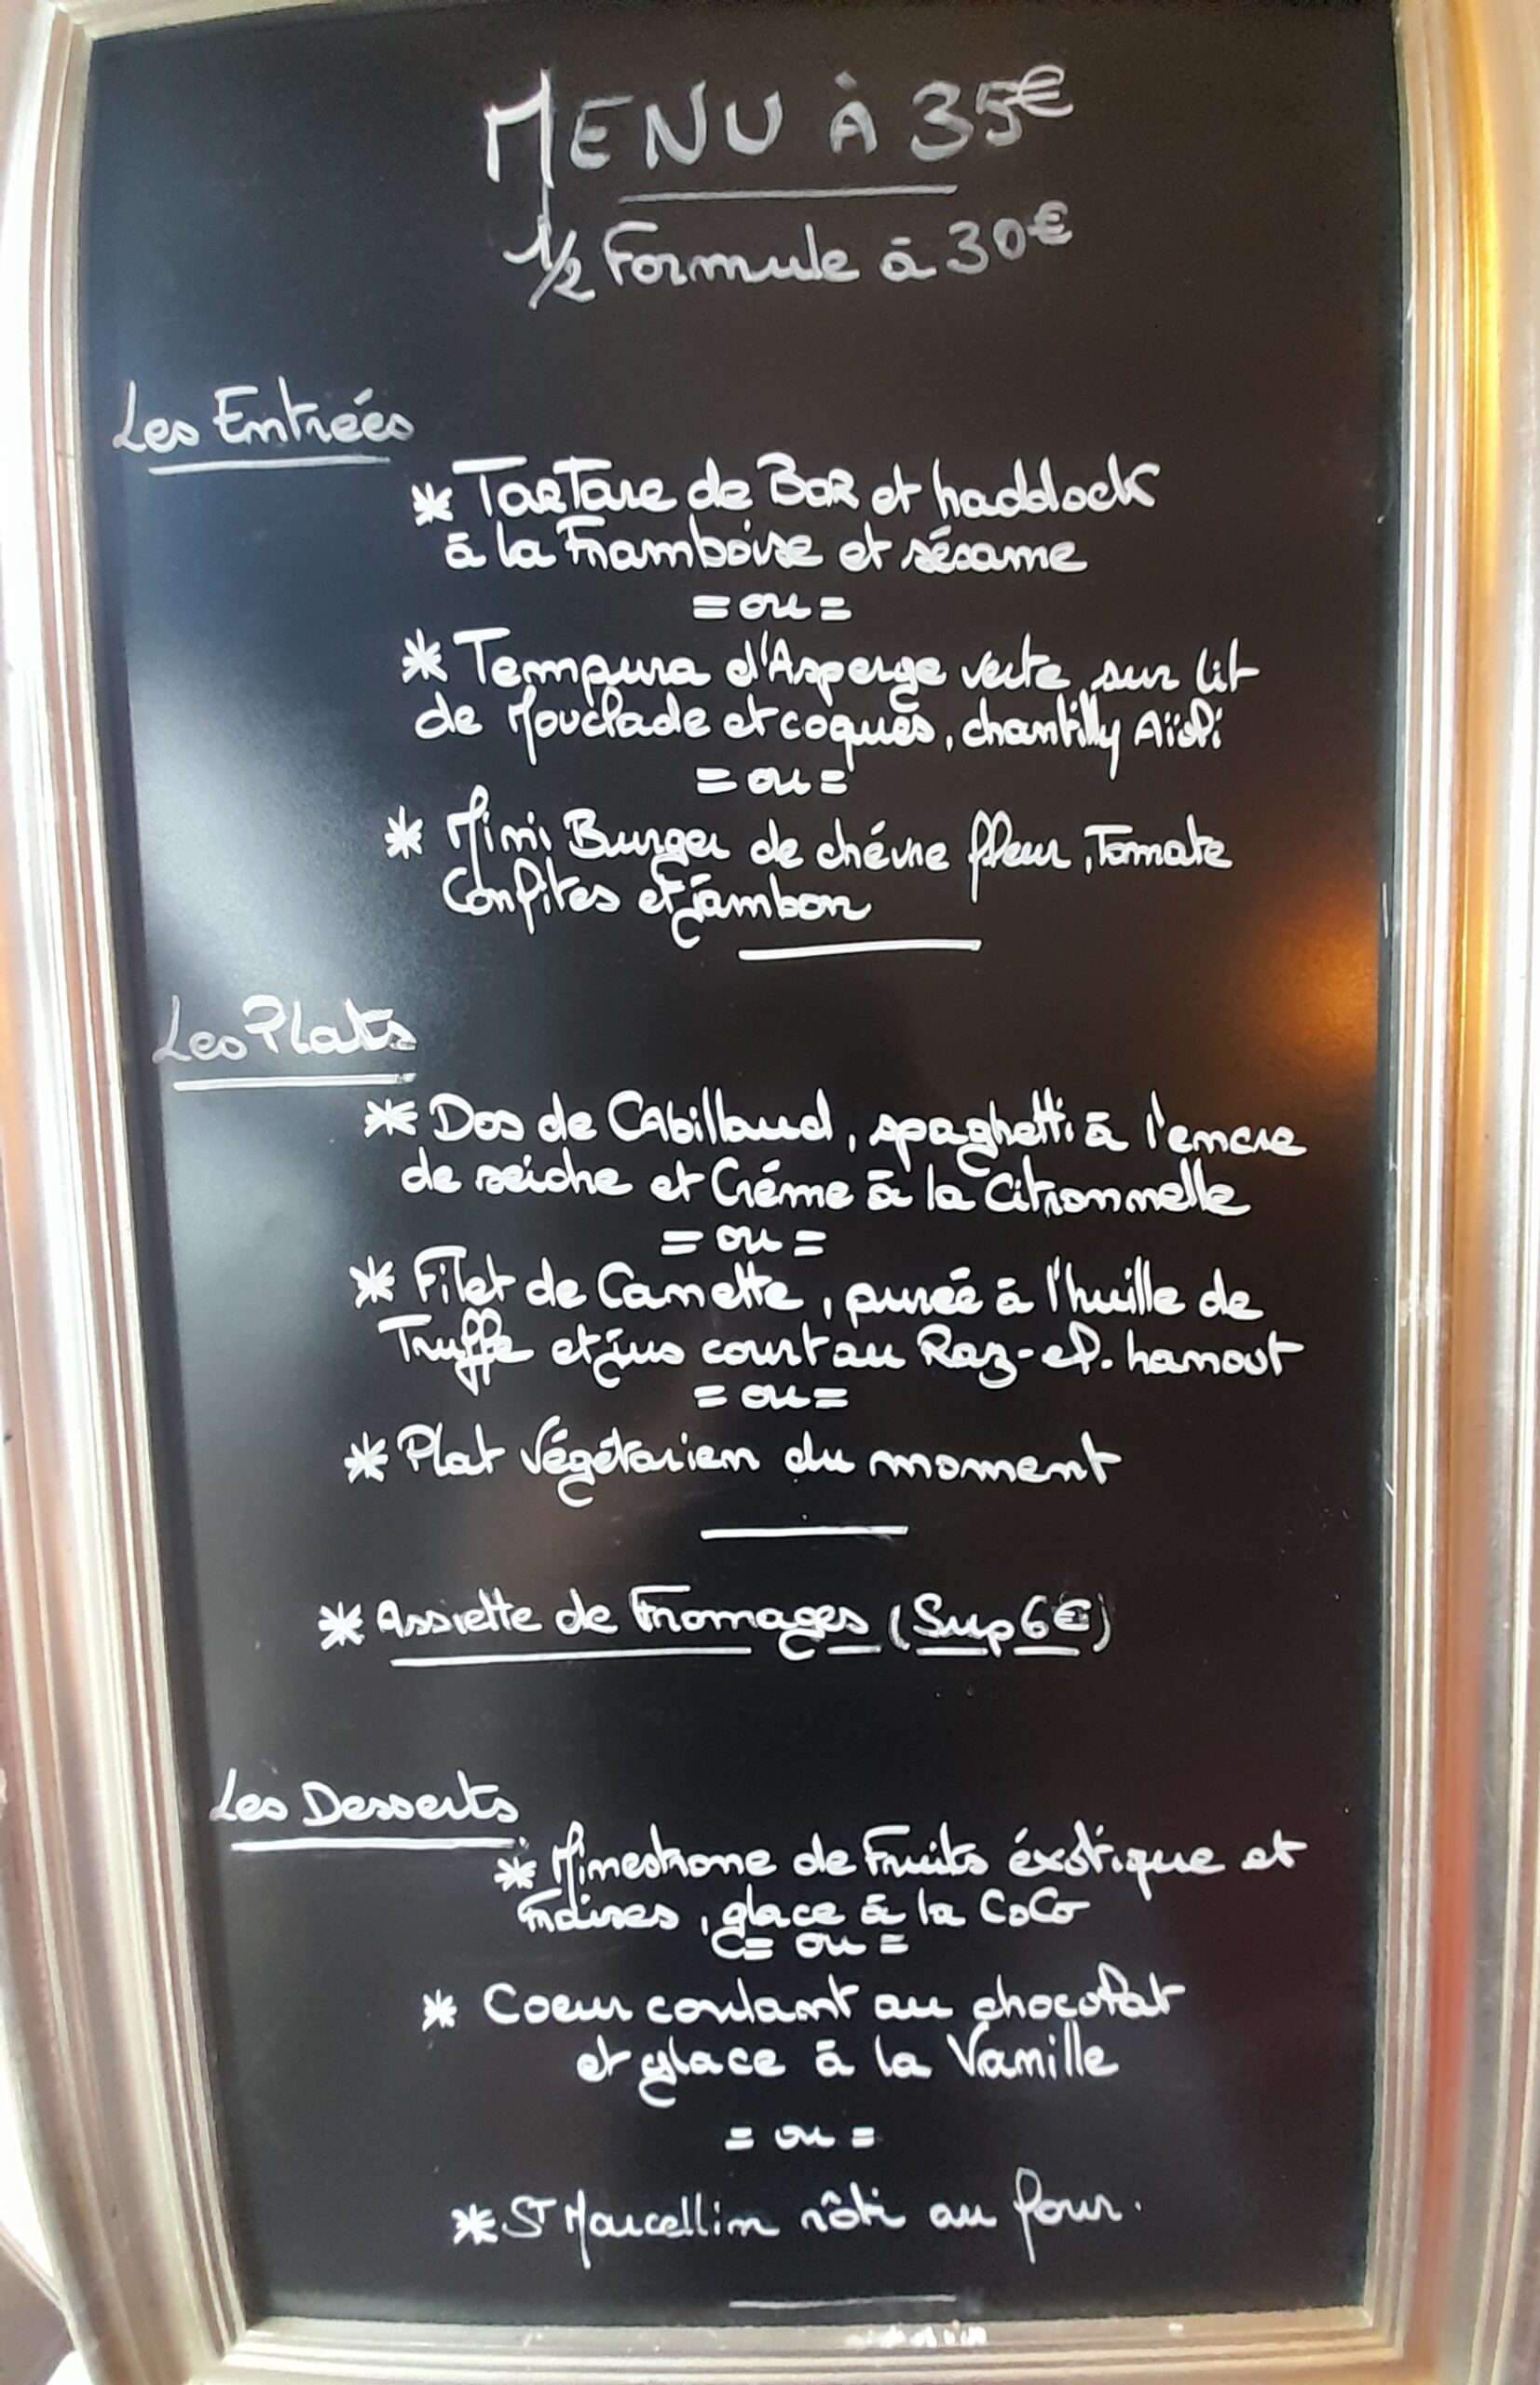 MENU À 35€
1/2 Formule à 30€
Les Entrées
* Tartare de Bar et haddock
à la Framboise et sésame
= ou =
* Tempura d'Asperge verte sur lit
de Mouclade et coques, chantilly Aïoli
= ou =
* Mini Burger de chévre fleur, Tomate
Confites et jambon
Les Plats
* Dos de Cabillaud, spaghetti à l'encre
de seiche et Créme à la Citronnelle
= ou =
* Filet de Canette, purée à l'huille de
Truffe et jus court au Raz-el-hanout
= ou =
* Plat Végétarien du moment
* Assiette de Fromages (Sup 6€)
Les Desserts
* Minestrone de Fruits éxotique et
fraises, glace à la CoCo
= ou =
* Coeur coulant au chocolat
et glace à la Vanille
= ou =
* St Marcellin rôti au four.